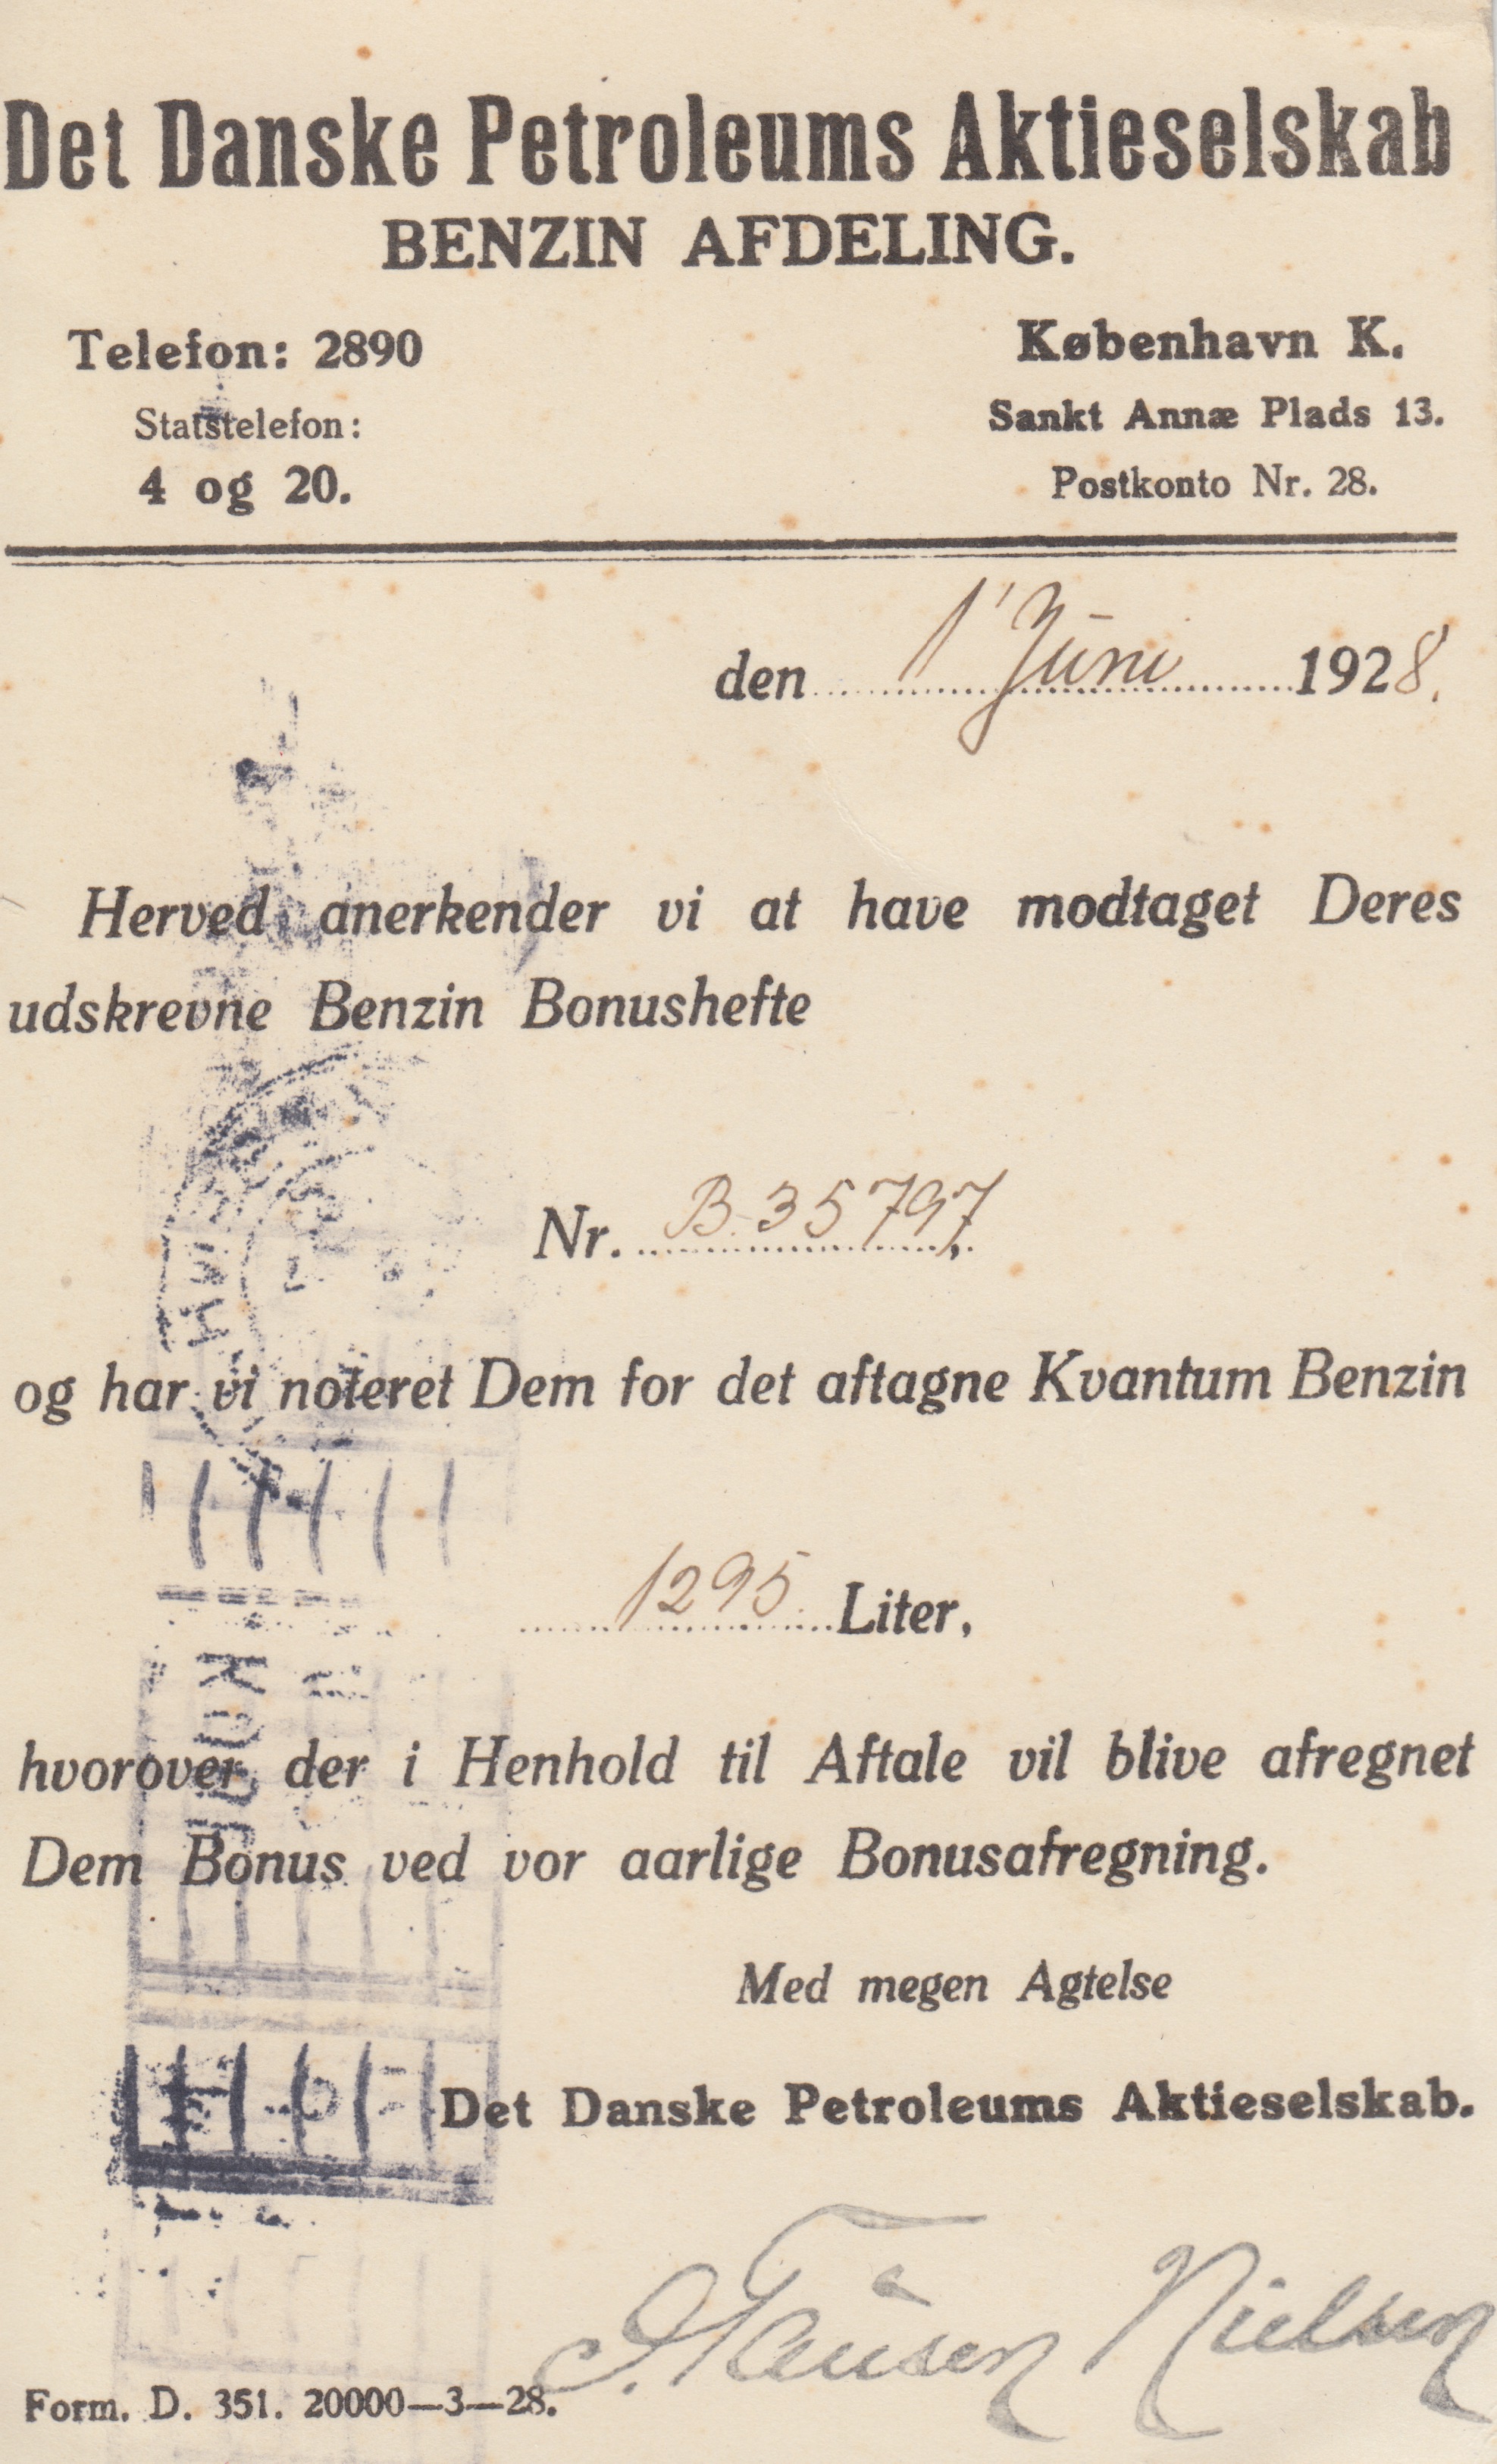 Det Danske Petroleums Aktieselskab
BENZIN AFDELING.
Telefon: 2890
Statstelefon:
4 og 20.
København K.
Sankt Annæ Plads 13.
Postkonto Nr. 28.
den 1' Juni 1928.
Herved anerkender vi at have modtaget Deres
udskrevne Benzin Bonushefte
Nr. B-35797,
og har vi noteret Dem for det aftagne Kvantum Benzin
1295 Liter,
hvorover der i Henhold til Aftale vil blive afregnet
Dem Bonus ved vor aarlige Bonusafregning.
Med megen Agtelse
Det Danske Petroleums Aktieselskab.
Nielsen
Form. D. 351. 20000—3—28.